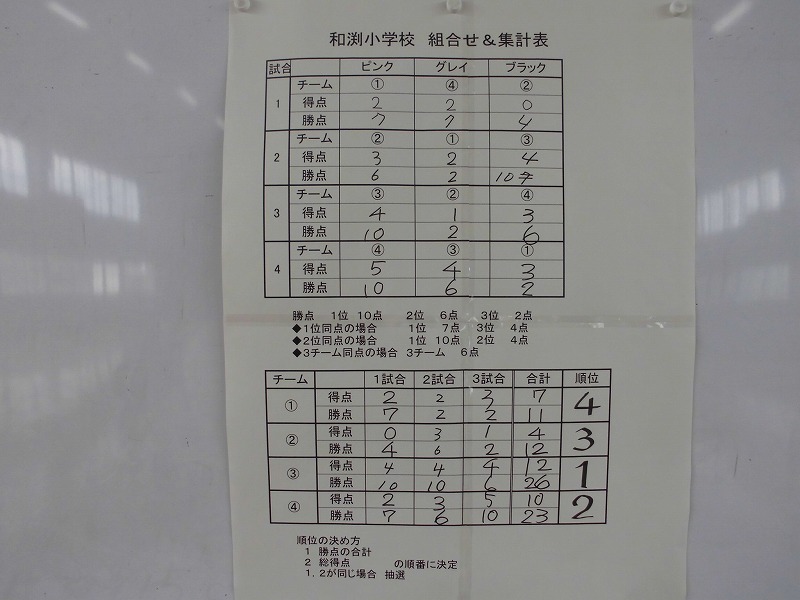 和渕小学校 組合せ&集計表
試合 ピンク グレイ ブラック
1 チーム ① ④ ②
得点 2 2 0
勝点 7 7 4
2 チーム ② ① ③
得点 3 2 4
勝点 6 2 10
3 チーム ③ ② ④
得点 4 1 3
勝点 10 2 6
4 チーム ④ ③ ①
得点 5 4 3
勝点 10 6 2
勝点 1位 10点 2位 6点 3位 2点
◆1位同点の場合 1位 7点 3位 4点
◆2位同点の場合 1位 10点 2位 4点
◆3チーム同点の場合 3チーム 6点
チーム 1試合 2試合 3試合 合計 順位
① 得点 2 2 3 7 4
勝点 7 2 2 11
② 得点 0 3 1 4 3
勝点 4 6 2 12
③ 得点 4 4 4 12 1
勝点 10 10 6 26
④ 得点 2 3 5 10 2
勝点 7 6 10 23
順位の決め方
1 勝点の合計
2 総得点 の順番に決定
1,2が同じ場合 抽選